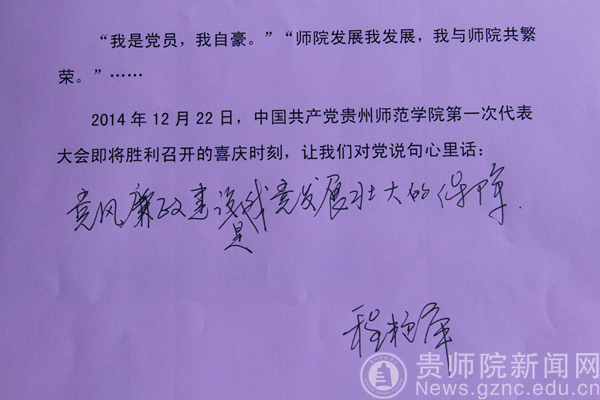 “我是党员，我自豪。”“师院发展我发展，我与师院共繁
荣。”……
2014 年 12 月 22 日，中国共产党贵州师范学院第一次代表
大会即将胜利召开的喜庆时刻，让我们对党说句心里话：
党风廉政建设是我党发展壮大的保障.
程
贵师院新闻网
News.gznc.edu.cn